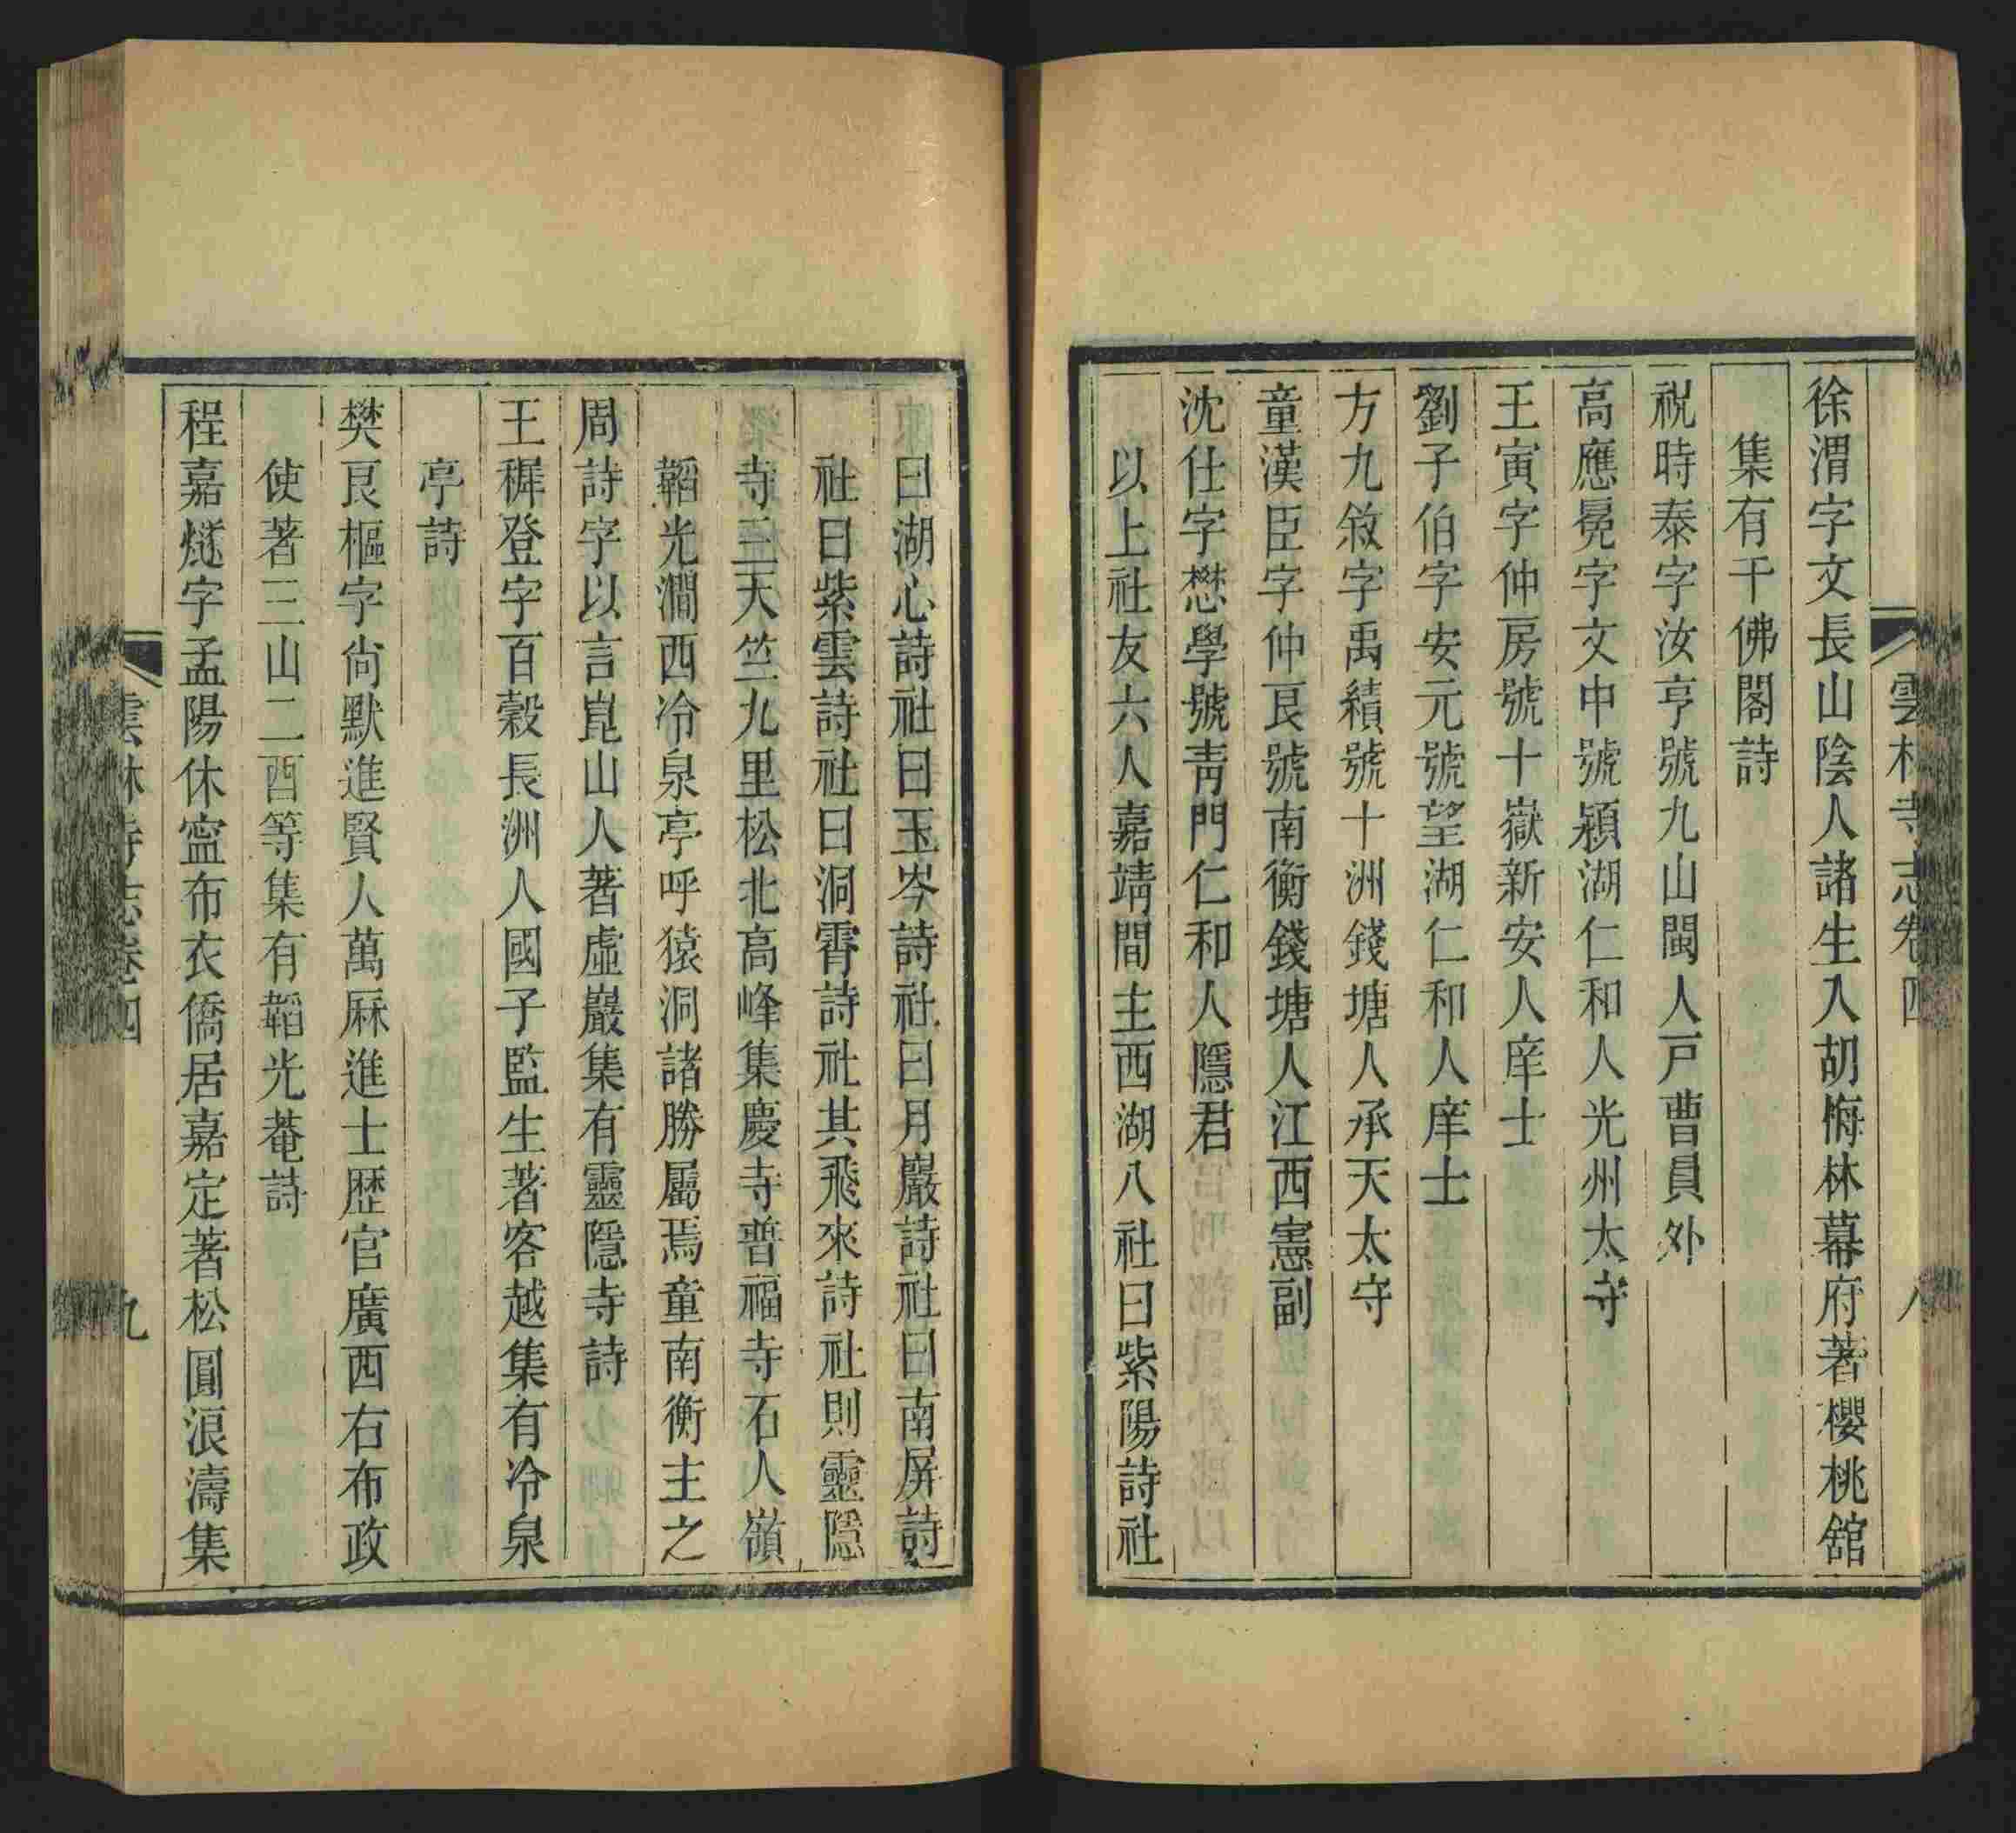 雲林寺志卷四
八
徐渭字文長山陰人諸生入胡梅林幕府著櫻桃舘
集有千佛閣詩
祝時泰字汝亨號九山閩人戸曹員外
高應冕字文中號潁湖仁和人光州太守
王寅字仲房號十嶽新安人庠士
劉子伯字安元號望湖仁和人庠士
方九敘字禹績號十洲錢塘人承天太守
童漢臣字仲良號南衡錢塘人江西憲副
沈仕字懋學號靑門仁和人隱君
以上社友六人嘉靖間主西湖八社曰紫陽詩社
曰湖心詩社曰玉岑詩社曰月巖詩社曰南屏詩
社曰紫雲詩社曰洞霄詩社其飛來詩社則靈隱
寺三天竺九里松北高峰集慶寺普福寺石人嶺
韜光澗西冷泉亭呼猿洞諸勝屬焉童南衡主之
周詩字以言崑山人著虛巖集有靈隱寺詩
王穉登字百穀長洲人國子監生著客越集有冷泉
亭詩
樊良樞字尙默進賢人萬厤進士歴官廣西右布政
使著三山二酉等集有韜光菴詩
程嘉燧字孟陽休寧布衣僑居嘉定著松圓浪濤集
雲林寺志卷四
九